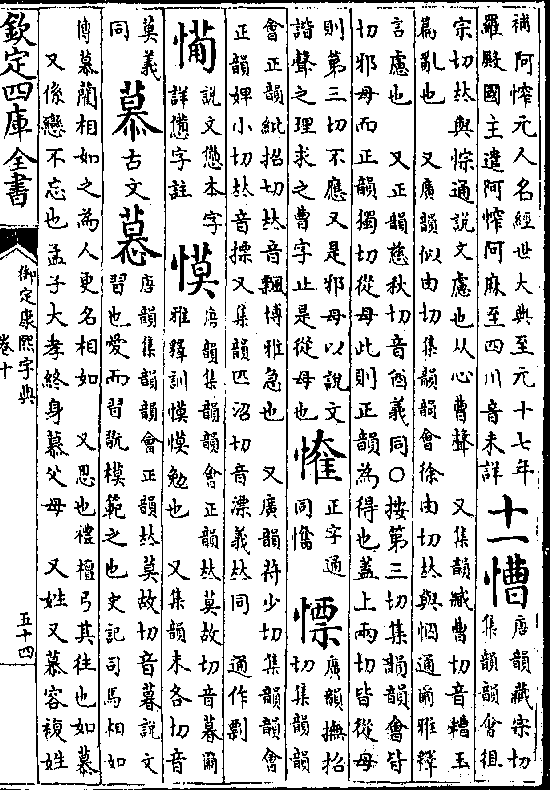 補 阿元人名經世大典至元十七年
羅殿國主遣阿阿麻至四川音未詳
十一 慒
唐韻藏宗切
集韻韻會徂
宗切𠀤與悰通說文慮也从心曹聲 又集韻臧曹切音糟玉
篇亂也 又廣韻似由切集韻韻會徐由切𠀤與通爾雅釋
言慮也 又正韻慈秋切音酋義同○按第三切集韻韻會皆
切邪母而正韻獨切從母此則正韻為得也蓋上兩切皆從母
則第三切不應又是邪母以說文
諧聲之理求之曹字止是從母也
正字通
同
慓
廣韻撫招
切集韻韻
會正韻紕招切𠀤音飄博雅急也 又廣韻符少切集韻韻會
正韻婢小切𠀤音摽又集韻匹沼切音漂義𠀤同 通作剽
說文憊本字
詳憊字註
慔
唐韻集韻韻會正韻𠀤莫故切音暮爾
雅釋訓慔慔勉也 又集韻末各切音
莫義
同
慕 古文
唐韻集韻韻會正韻𠀤莫故切音暮說文
習也愛而習翫模範之也史記司馬相如
傳慕藺相如之為人更名相如 又思也禮檀弓其往也如慕
又係戀不忘也孟子大孝終身慕父母 又姓又慕容複姓
欽定四庫全書
御定康熙字典
卷十
五十四